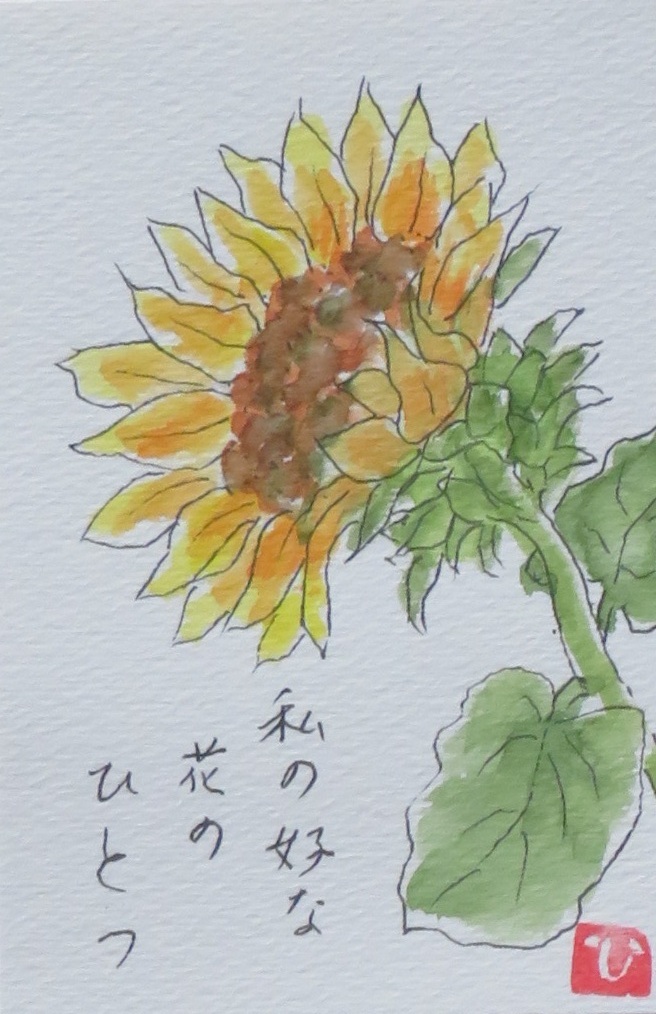 私の好な
花の
ひとつ
ひ